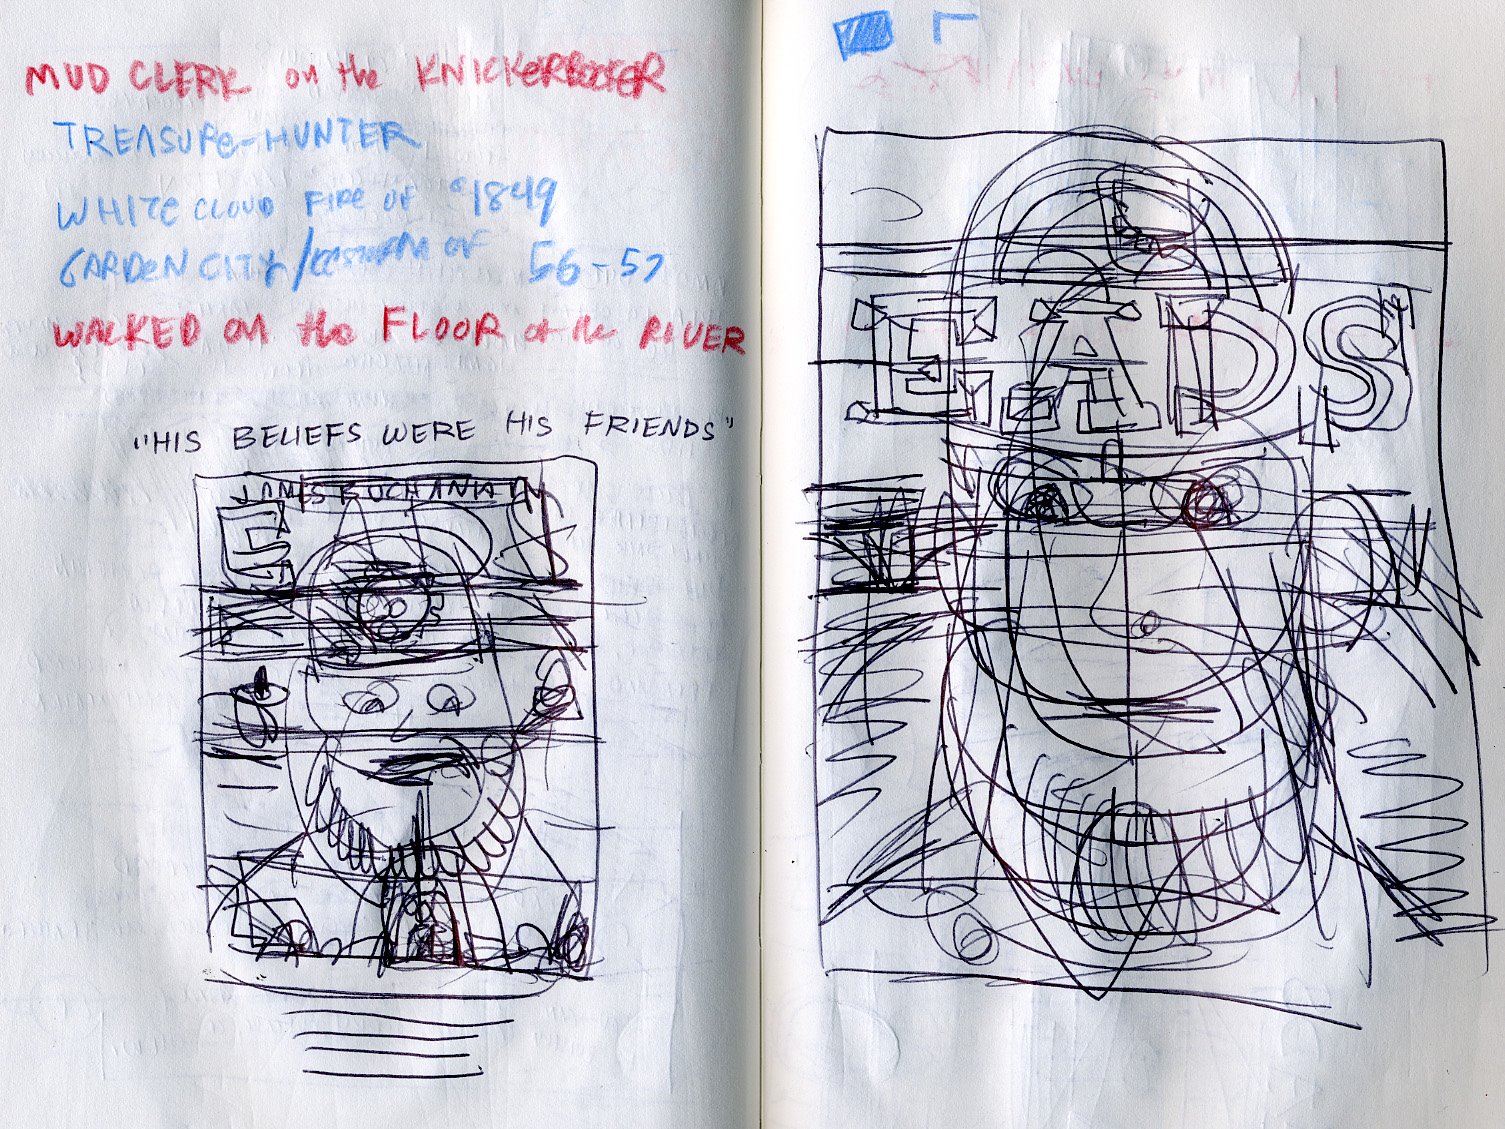 MUD CLERK on the KNICKERBOCKER
TREASURE-HUNTER
WHITE CLOUD FIRE OF 1849
GARDEN CITY / OF 56-57
WALKED ON the FLOOR of the RIVER
"HIS BELIEFS WERE HIS FRIENDS"
JAMES BUCHANAN
EADS